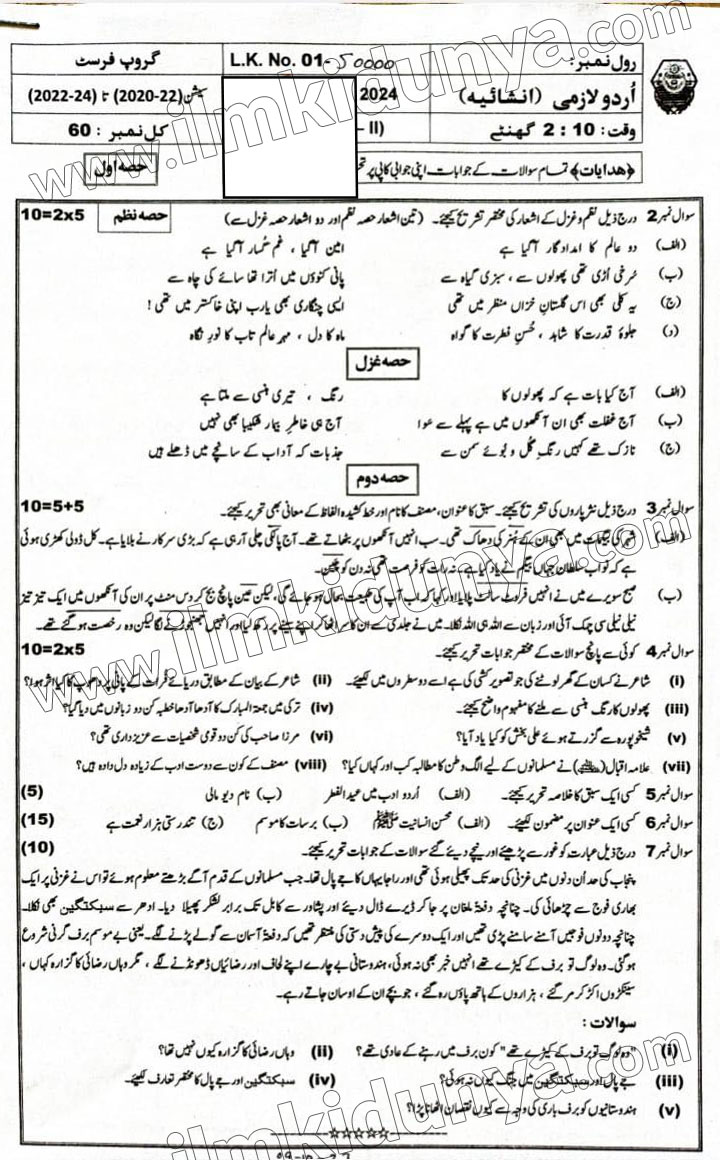 رول نمبر:
L.K. No. 01-50000
گروپ فرسٹ
اُردو لازمی (انشائیہ)
2024
سیشن (2020-22) تا (2022-24)
وقت: 2:10 گھنٹے
- II)
کل نمبر: 60
﴿هدایات﴾ تمام سوالات کے جوابات اپنی جوابی کاپی پر
حصہ اول
سوال نمبر 2 درج ذیل نظم و غزل کے اشعار کی مختصر تشریح کیجئے۔ (تین اشعار حصہ نظم اور دو اشعار حصہ غزل سے) حصہ نظم 10=2x5
(الف) دو عالم کا امدادگار آگیا ہے امین آگیا ، غم گسار آگیا ہے
(ب) سُرخی اُڑی تھی پھولوں سے ، سبزی گیاہ سے پانی کنوؤں میں اُترا تھا سائے کی چاہ سے
(ج) یہ کلی بھی اس گلستانِ خزاں منظر میں تھی ایسی چنگاری بھی یارب اپنی خاکستر میں تھی!
(د) جلوۂ قدرت کا شاہد ، حُسنِ فطرت کا گواہ ماہ کا دل ، مہرِ عالم تاب کا نورِ نگاہ
حصہ غزل
(الف) آج کیا بات ہے کہ پھولوں کا رنگ ، تیری ہنسی سے ملتا ہے
(ب) آج غفلت بھی ان آنکھوں میں ہے پہلے سے سوا آج ہی خاطرِ بیمار شکیبا بھی نہیں
(ج) نازک تھے کہیں رنگِ گل و بُوئے سمن سے جذبات کہ آداب کے سانچے میں ڈھلے ہیں
حصہ دوم
سوال نمبر 3 درج ذیل نثر پاروں کی تشریح کیجئے۔ سبق کا عنوان، مصنف کا نام اور خط کشیدہ الفاظ کے معانی بھی تحریر کیجئے۔ 10=5+5
(الف) شہر کی بیگمات میں بھی ان کے ہنر کی دھاک تھی۔ سب انہیں آنکھوں پر بٹھاتے تھے۔ آج پالکی چلی آرہی ہے کہ بڑی سرکار نے بلایا ہے۔ کل ڈولی کھڑی ہوئی
ہے کہ نواب سلطان جہاں بیگم نے یاد کیا ہے، نہ رات کو فرصت تھی نہ دن کو چین۔
(ب) صبح سویرے میں نے انہیں فروٹ سالٹ پلایا اور کہا کہ اب آپ کی طبیعت بحال ہو جائے گی، لیکن عین پانچ بج کر دس منٹ پر ان کی آنکھوں میں ایک تیز تیز
نیلی نیلی سی چمک آئی اور زبان سے اللہ ہی اللہ نکلا۔ میں نے جلدی سے ان کا سر اٹھا کر اپنے سینے پر رکھ لیا اور انہیں جھنجھوڑنے لگا لیکن وہ رخصت ہو گئے تھے۔
سوال نمبر 4 کوئی سے پانچ سوالات کے مختصر جوابات تحریر کیجئے۔ 10=2x5
(i) شاعر نے کسان کے گھر لوٹنے کی جو تصویر کشی کی ہے اسے دو سطروں میں لکھیئے۔ (ii) شاعر کے بیان کے مطابق دریائے فرات کے پانی پر دھوپ کا کیا اثر ہوا؟
(iii) پھولوں کا رنگ ہنسی سے ملنے کا مفہوم واضح کیجئے۔ (iv) ترکی میں جمعۃ المبارک کا آدھا آدھا خطبہ کن دو زبانوں میں دیا گیا؟
(v) شیخوپورہ سے گزرتے ہوئے علی بخش کو کیا یاد آیا؟ (vi) مرزا صاحب کی کن دو قومی شخصیات سے عزیز داری تھی؟
(vii) علامہ اقبال نے مسلمانوں کے لیے الگ وطن کا مطالبہ کب اور کہاں کیا؟ (viii) مصنف کے کون سے دوست ادب کے زیادہ دل دادہ ہیں؟
سوال نمبر 5 کسی ایک سبق کا خلاصہ تحریر کیجئے۔ (الف) اُردو ادب میں عید الفطر (ب) نام دیو مالی (5)
سوال نمبر 6 کسی ایک عنوان پر مضمون لکھیئے۔ (الف) محسن انسانیت ﷺ (ب) برسات کا موسم (ج) تندرستی ہزار نعمت ہے (15)
سوال نمبر 7 درج ذیل عبارت کو غور سے پڑھیئے اور نیچے دیئے گئے سوالات کے جوابات تحریر کیجئے۔ (10)
پنجاب کی حد ان دنوں میں غزنی کی حد تک پھیلی ہوئی تھی اور راجا یہاں کا جے پال تھا۔ جب مسلمانوں کے قدم آگے بڑھتے معلوم ہوئے تو اس نے غزنی پر ایک
بھاری فوج سے چڑھائی کی۔ چنانچہ دفعۃً ملغان پر جا کر ڈیرے ڈال دیئے اور پشاور سے کابل تک برابر لشکر پھیلا دیا۔ ادھر سے سبکتگین بھی نکلا۔
چنانچہ دونوں فوجیں آمنے سامنے پڑی تھیں اور ایک دوسرے کی پیش دستی کی منتظر تھیں کہ دفعۃً آسمان سے گولے پڑنے لگے۔ یعنی بے موسم برف گرنی شروع
ہوگئی۔ وہ لوگ تو برف کے کیڑے تھے انہیں خبر بھی نہ ہوئی، ہندوستانی بے چارے اپنے لحاف اور رضائیاں ڈھونڈنے لگے ، مگر وہاں رضائی کا گزارہ کہاں ،
سینکڑوں اکڑ کر مر گئے ، ہزاروں کے ہاتھ پاؤں رہ گئے ، جو بچے ان کے اوسان جاتے رہے۔
سوالات :
(i) "وہ لوگ تو برف کے کیڑے تھے" کون برف میں رہنے کے عادی تھے؟ (ii) وہاں رضائی کا گزارہ کیوں نہیں تھا؟
(iii) جے پال اور سبکتگین میں جنگ کیوں نہ ہوئی؟ (iv) سبکتگین اور جے پال کا مختصر تعارف لکھیئے۔
(v) ہندوستانیوں کو برف باری کی وجہ سے کیوں نقصان اٹھانا پڑا؟
www.ilmkidunya.com
www.ilmkidunya.com
www.ilmkidunya.com